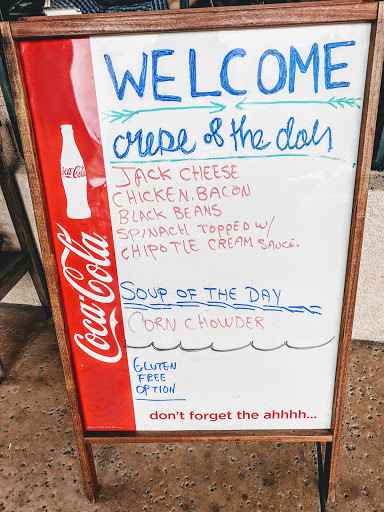 WELCOME
crepe of the day
JACK CHEESE
CHICKEN, BACON
BLACK BEANS
SPINACH TOPPED W/
CHIPOTLE CREAM SAUCE.
SOUP OF THE DAY
CORN CHOWDER
GLUTEN
FREE
OPTION
don't forget the ahhhh...
Coca-Cola
Coca-Cola